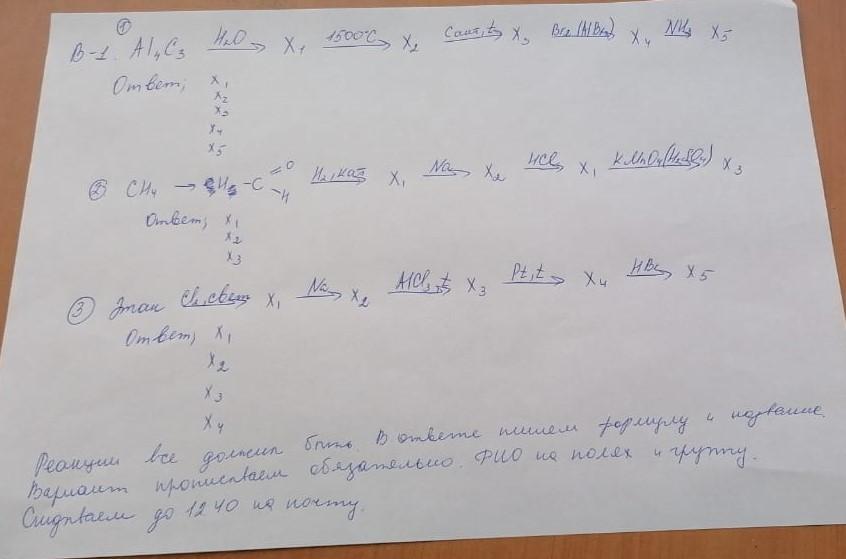 ①
В-1. Al₄C₃ —H₂O→ X₁ —1500°C→ X₂ —Cакт,t→ X₃ —Br₂(AlBr₃)→ X₄ —NH₃→ X₅
Ответ; X₁
X₂
X₃
X₄
X₅
② CH₄ → CH₃-C =O -H —H₂, кат→ X₁ —Na→ X₂ —HCl→ X₁ —KMnO₄(H₂SO₄)→ X₃
Ответ; X₁
X₂
X₃
③ Этан —Cl₂, свет→ X₁ —Na→ X₂ —AlCl₃,t→ X₃ —Pt,t→ X₄ —HBr→ X₅
Ответ; X₁
X₂
X₃
X₄
Реакции все должны быть. В ответе пишем формулу и название.
Вариант прописываем обязательно. ФИО на полях и группу.
Скидываем до 12 40 на почту.